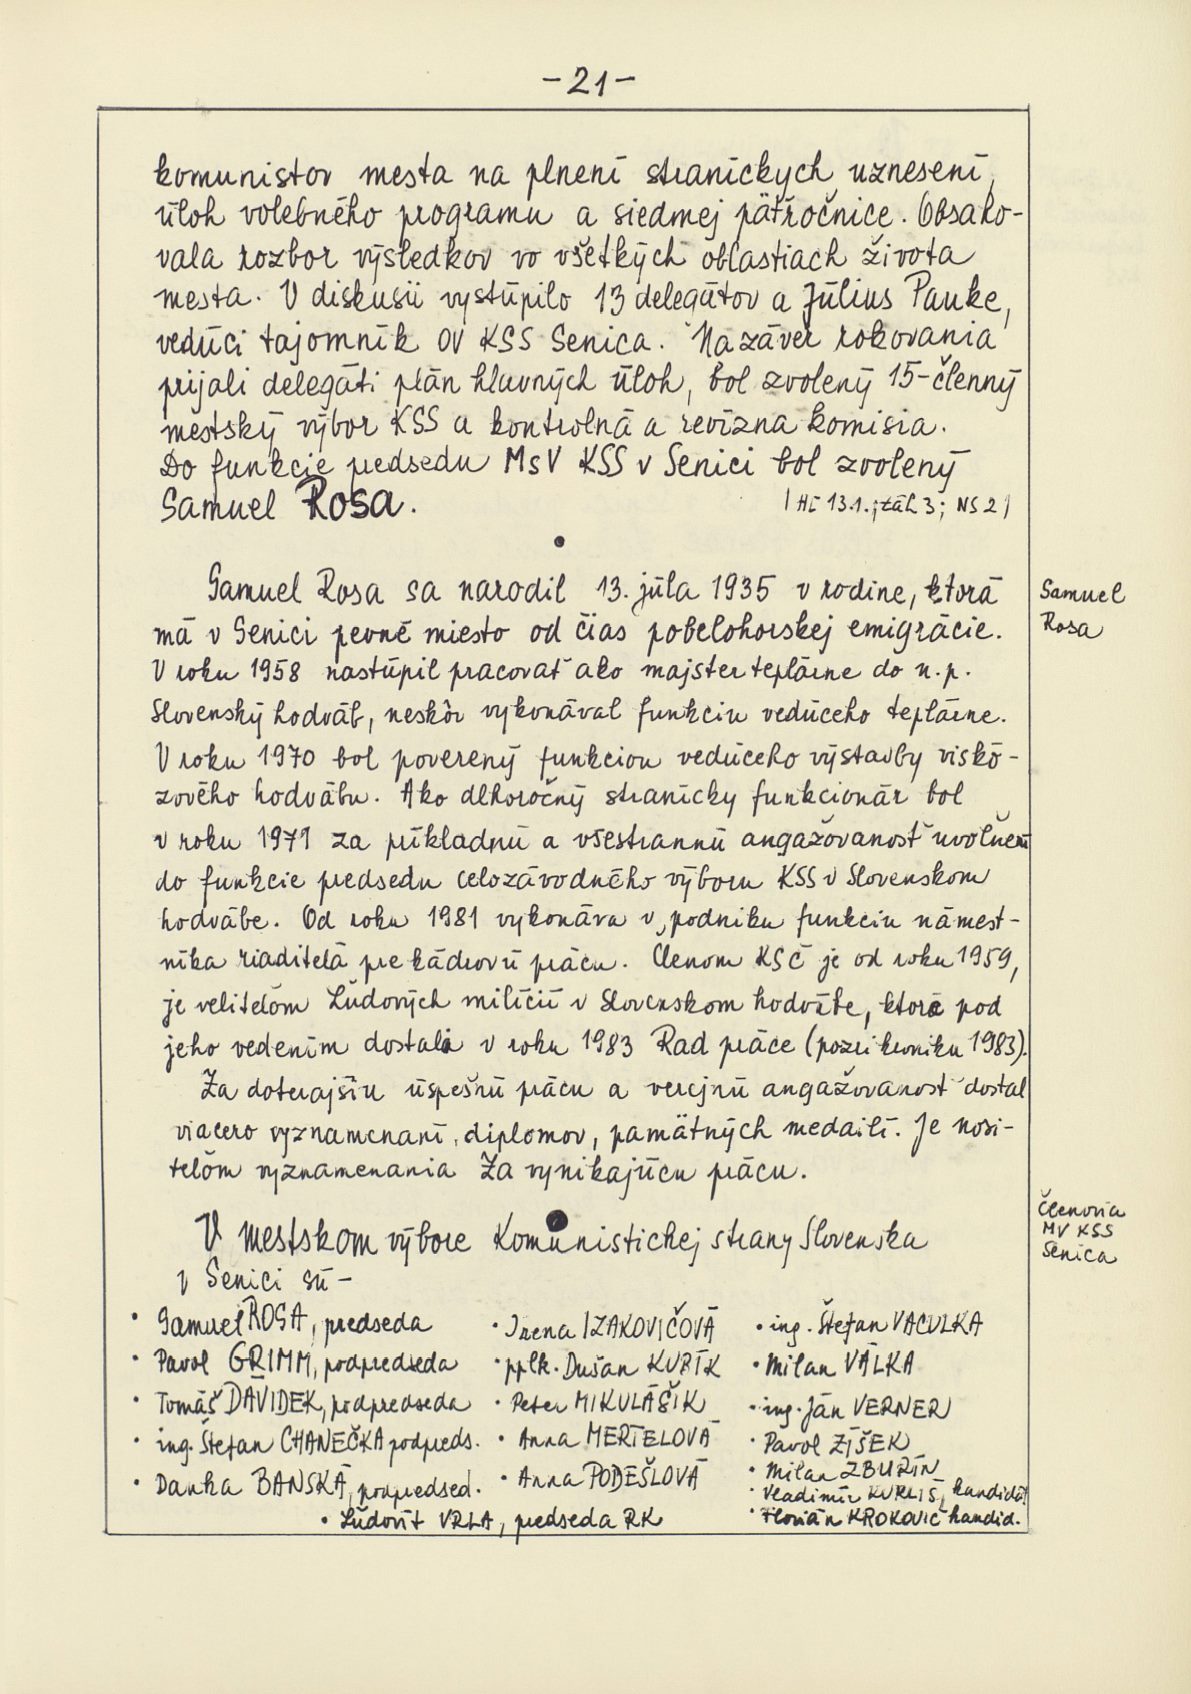 -21-
komunistov mesta na plnení straníckych uznesení,
úloh volebného programu a siedmej päťročnice. Obsaho-
vala rozbor výsledkov vo všetkých oblastiach života
mesta. V diskusii vystúpilo 13 delegátov a Július Pauke,
vedúci tajomník OV KSS Senica. Na záver rokovania
prijali delegáti plán hlavných úloh, bol zvolený 15-členný
mestský výbor KSS a kontrolná a revízna komisia.
Do funkcie predsedu MsV KSS v Senici bol zvolený
Samuel Rosa.
/ Hl 13.1.; záh 3; NS 2 /
Samuel Rosa sa narodil 13. júla 1935 v rodine, ktorá
má v Senici pevné miesto od čias pobelohorskej emigrácie.
V roku 1958 nastúpil pracovať ako majster teplárne do n.p.
Slovenský hodváb, neskôr vykonával funkciu vedúceho teplárne.
V roku 1970 bol poverený funkciou vedúceho výstavby viskó-
zového hodvábu. Ako dlhoročný stranícky funkcionár bol
v roku 1971 za príkladnú a všestrannú angažovanosť uvoľnený
do funkcie predsedu celozávodného výboru KSS v Slovenskom
hodvábe. Od roku 1981 vykonáva v podniku funkciu námest-
níka riaditeľa pre kádrovú prácu. Členom KSČ je od roku 1959,
je veliteľom Ľudových milícií v Slovenskom hodvábe, ktoré pod
jeho vedením dostali v roku 1983 Rad práce (pozri kroniku 1983).
Za doterajšiu úspešnú prácu a verejnú angažovanosť dostal
viacero vyznamenaní, diplomov, pamätných medailí. Je nosi-
teľom vyznamenania Za vynikajúcu prácu.
Samuel
Rosa
V mestskom výbore Komunistickej strany Slovenska
v Senici sú -
Členovia
MV KSS
Senica
• Samuel ROSA, predseda
• Pavol GRIMM, podpredseda
• Tomáš DÁVIDEK, podpredseda
• ing. Štefan CHANEČKA podpreds.
• Danka BANSKÁ, podpredsed.
• Ľudovít VRLA, predseda RK
• Irena IZAKOVIČOVÁ
• pplk. Dušan KURÍK
• Peter MIKULÁŠIK
• Anna MERTELOVÁ
• Anna PODEŠLOVÁ
• ing. Štefan VACULKA
• Milan VÁLKA
• ing. Ján VERNER
• Pavol ZÍŠEK
• Milan ZBURÍN
• Vladimír KURLIŠ, kandidát
• Florián KROKOVIČ kandid.